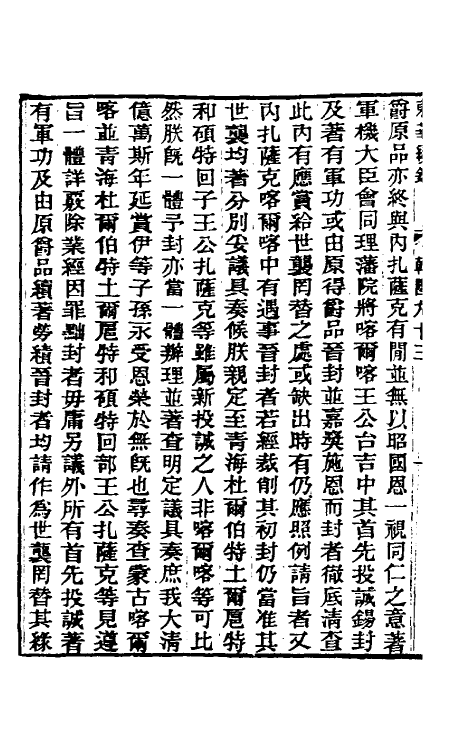 東華續錄 乾隆九十三
爵原品亦終與內扎薩克有間並無以昭國恩一視同仁之意著
軍機大臣會同理藩院將喀爾喀王公台吉中其首先投誠錫封
及著有軍功或由原得爵品晉封並嘉獎施恩而封者徹底清查
此內有應賞給世襲罔替之處或缺出時有仍應照例請旨者又
內扎薩克喀爾喀中有遇事晉封者若經裁削其初封仍當准其
世襲均著分別妥議具奏候朕親定至青海杜爾伯特土爾扈特
和碩特回子王公扎薩克等雖屬新投誠之人非喀爾喀等可比
然朕旣一體予封亦當一體辦理並著查明定議具奏庶我大清
億萬斯年延賞伊等子孫永受恩榮於無旣也尋奏查蒙古喀爾
喀並青海杜爾伯特土爾扈特和碩特回部王公扎薩克等見遵
旨一體詳覈除業經因罪黜封者毋庸另議外所有首先投誠著
有軍功及由原爵品績著勞績晉封者均請作為世襲罔替其緣